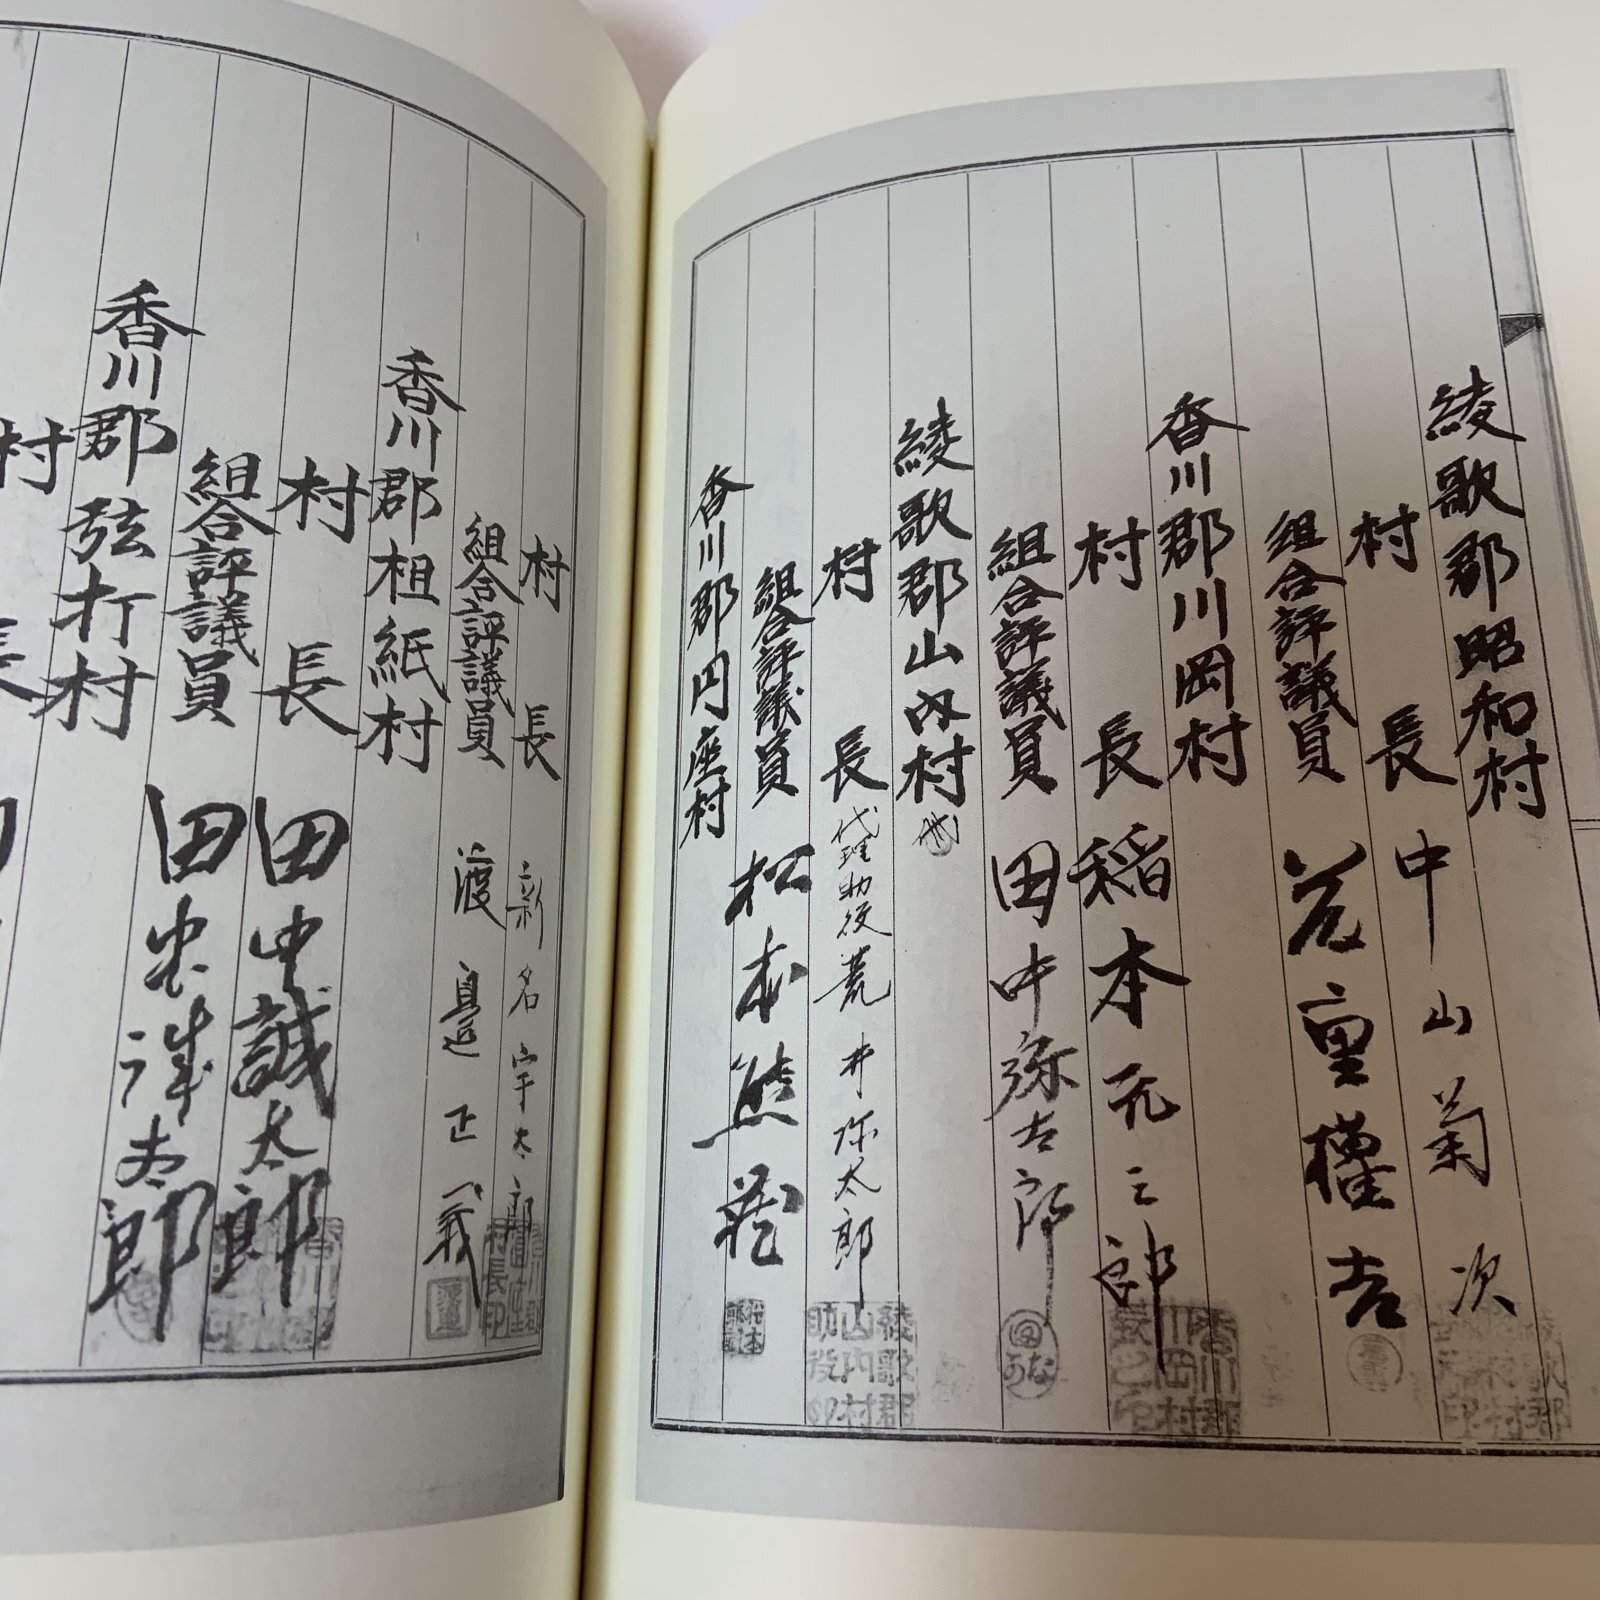 綾歌郡昭和村
村長 中山菊次
組合評議員 荒重權吉
香川郡川岡村
村長 稲本元三郎
組合評議員 田中弥吉郎
綾歌郡山内村
村長 代理助役 荒井弥太郎
組合評議員 松本熊蔵
香川郡円座村
村長 新名宇太郎
組合評議員 渡邉正義
香川郡柤紙村
村長 田中誠太郎
組合評議員
香川郡弦打村
村長
綾歌郡
山内村
助役印
香川郡
川岡村
長之印
村長印
松本